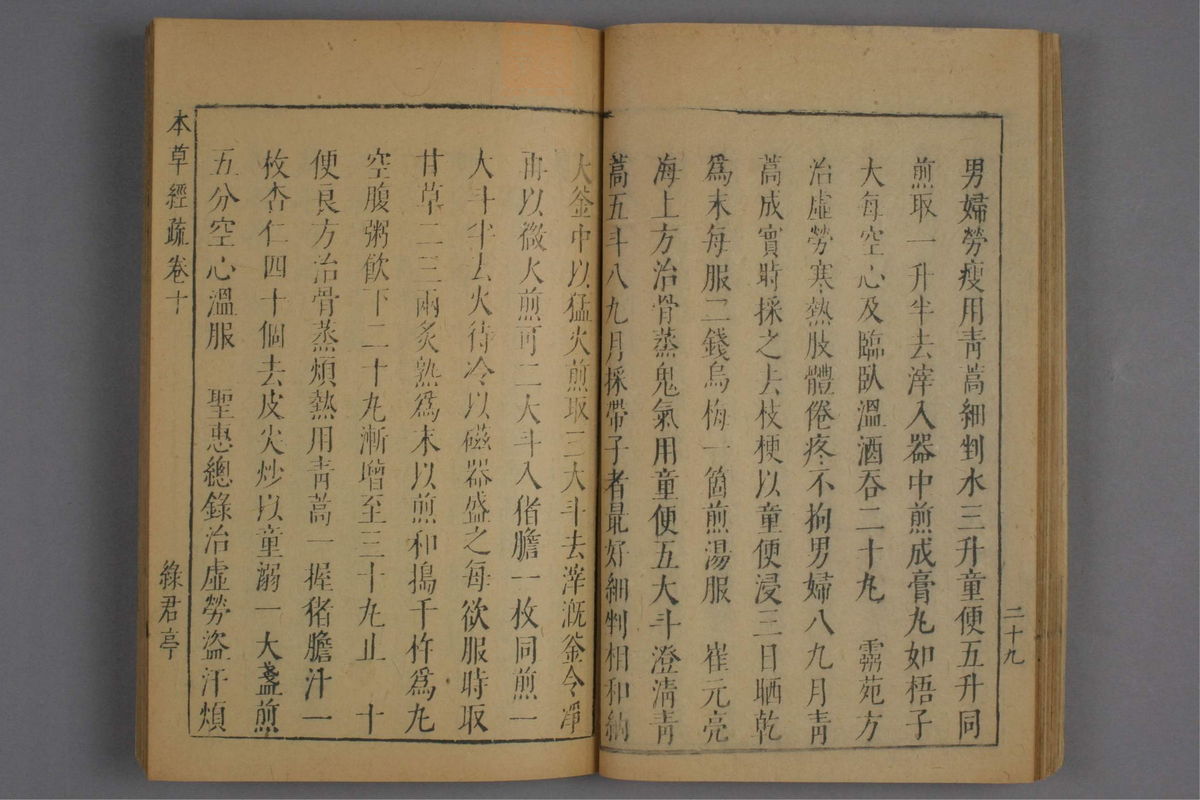 二十九
男婦勞瘦用靑蒿細剉水三升童便五升同
煎取一升半去滓入器中煎成膏丸如梧子
大每空心及臨臥溫酒吞二十丸　靈苑方
治虛勞寒熱肢體倦疼不拘男婦八九月靑
蒿成實時採之去枝梗以童便浸三日晒乾
爲末每服二錢烏梅一箇煎湯服　崔元亮
海上方治骨蒸鬼氣用童便五大斗澄淸靑
蒿五斗八九月採帶子者最好細剉相和納
大釜中以猛火煎取三大斗去滓漑釜令淨
再以微火煎可二大斗入猪膽一枚同煎一
大斗半去火待冷以磁器盛之每欲服時取
甘草二三兩炙熟爲末以煎和搗千杵爲丸
空腹粥飮下二十丸漸增至三十丸止　十
便良方治骨蒸煩熱用靑蒿一握猪膽汁一
枚杏仁四十個去皮尖炒以童溺一大盞煎
五分空心溫服　聖惠總錄治虛勞盜汗煩
本草經疏卷十
綠君亭